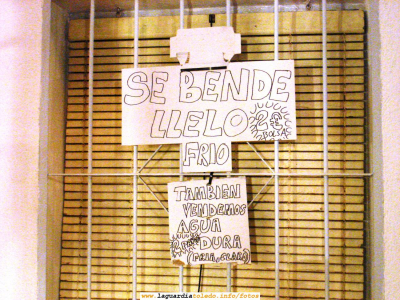 SE BENDE
LLELO 2€
BOLSA
FRIO
TAMBIEN
VENDEMOS
AGUA
DURA
(FRIA, CLARO)
www.laguardiatoledo.info/fotos